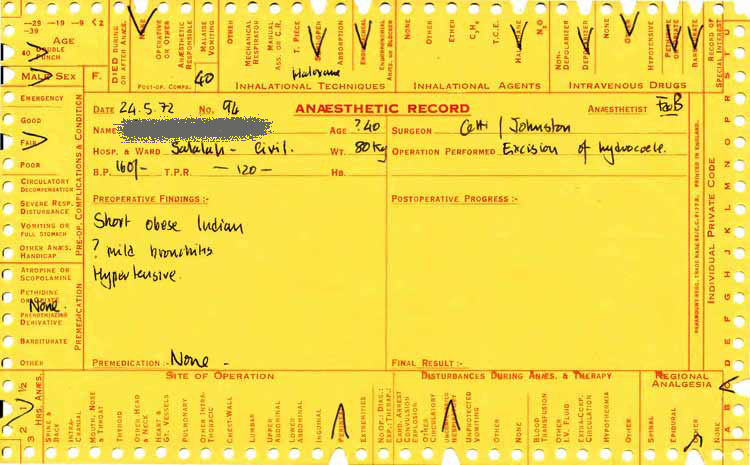 -29 -19 -9 <2
-39
AGE
40 DOUBLE PUNCH
MALE SEX F.
DIED DURING OR AFTER ANÆS.
NONE
OPERATIVE OR OTHER
ANÆSTHETIC RESPONSIBLE
MALAISE VOMITING
OTHER
POST-OP. COMPS.
40
MECHANICAL RESPIRATOR
MANUAL ASS. OR C.R.
T. PIECE
ABSORPTION
Halothane
INHALATIONAL TECHNIQUES
NONE
OTHER
ETHER
C₃H₆
T.C.E.
HALOTHANE
N₂O
INHALATIONAL AGENTS
NON-DEPOLARIZER
DEPOLARIZER
NONE
OTHER
HYPOTENSIVE
BARBITURATE
INTRAVENOUS DRUGS
RECORD OF SPECIAL INTEREST
EMERGENCY
GOOD
FAIR
POOR
CIRCULATORY DECOMPENSATION
SEVERE RESP. DISTURBANCE
VOMITING OR FULL STOMACH
OTHER ANÆS. HANDICAP
PRE-OP. COMPLICATIONS & CONDITION
ATROPINE OR SCOPOLAMINE
PETHIDINE OR OPIATE
None
PHENOTHIAZINE DERIVATIVE
BARBITURATE
OTHER
PREMEDICATION
DATE 24.5.72 NO. 94 ANÆSTHETIC RECORD ANÆSTHETIST
NAME AGE ?40 SURGEON Cetti / Johnston
HOSP. & WARD Salalah - Civil. WT. 80kg OPERATION PERFORMED Excision of hydrocoele.
B.P. 160/- T.P.R. - 120 - HB.
PREOPERATIVE FINDINGS :- POSTOPERATIVE PROGRESS :-
Short obese Indian
? mild bronchitis
Hypertensive.
PREMEDICATION :- None - FINAL RESULT :-
PRINTED IN ENGLAND.
INDIVIDUAL PRIVATE CODE
A B C D E F G H J K L M N O P R S
3 2 1 ½
HRS. ANÆS.
SITE OF OPERATION
SPINE & BACK
INTRA-CRANIAL
MOUTH, NOSE & THROAT
THYROID
OTHER HEAD & NECK
HEART & GT. VESSELS
PULMONARY
OTHER INTRA-THORACIC
CHEST-WALL
LUMBAR
UPPER ABDOMINAL
LOWER ABDOMINAL
INGUINAL
EXTREMITIES
DISTURBANCES DURING ANÆS. & THERAPY
NO OF DIS.: EXP.: THERAP.:
CARD. ARREST CONVULSION EXPLOSION
OTHER CIRCULATORY
UNPROTECTED VOMITING
OTHER
NONE
BLOOD TRANSFUSION
OTHER I.V. FLUID
EXTRA-CORP. CIRCULATION
HYPOTHERMIA
OTHER
REGIONAL ANALGESIA
SPINAL
EPIDURAL
OTHER
NONE